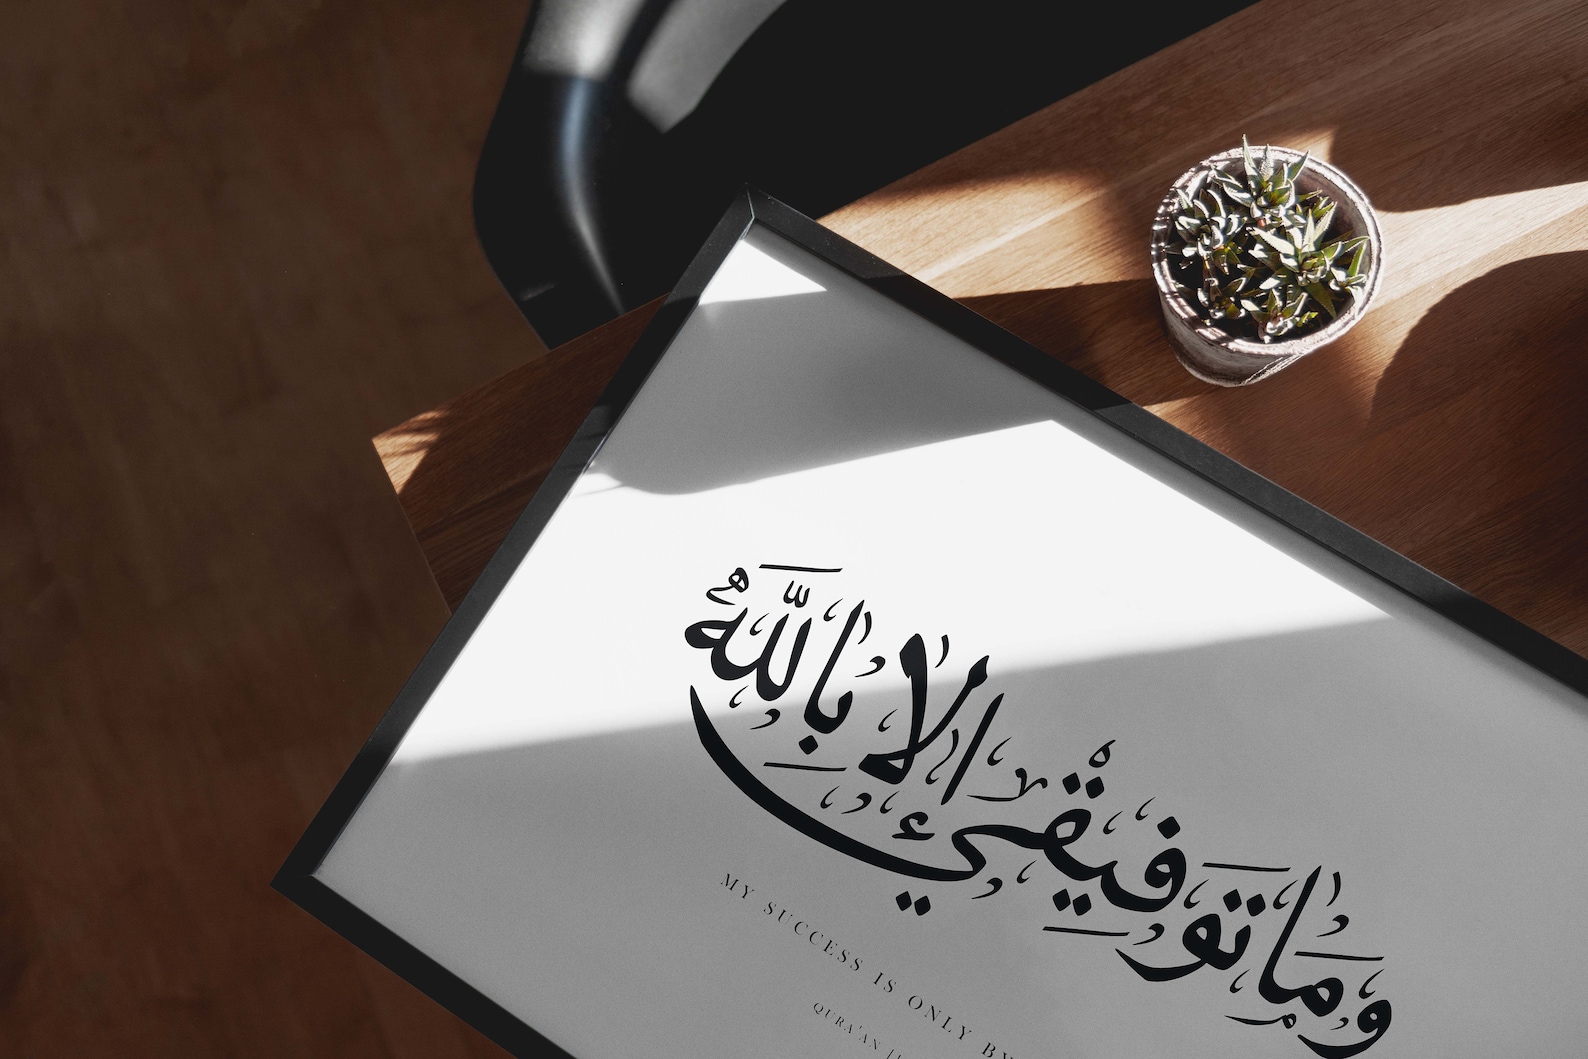 وَمَا تَوْفِيقِي إِلَّا بِاللَّهِ
MY SUCCESS IS ONLY BY
QURA'AN